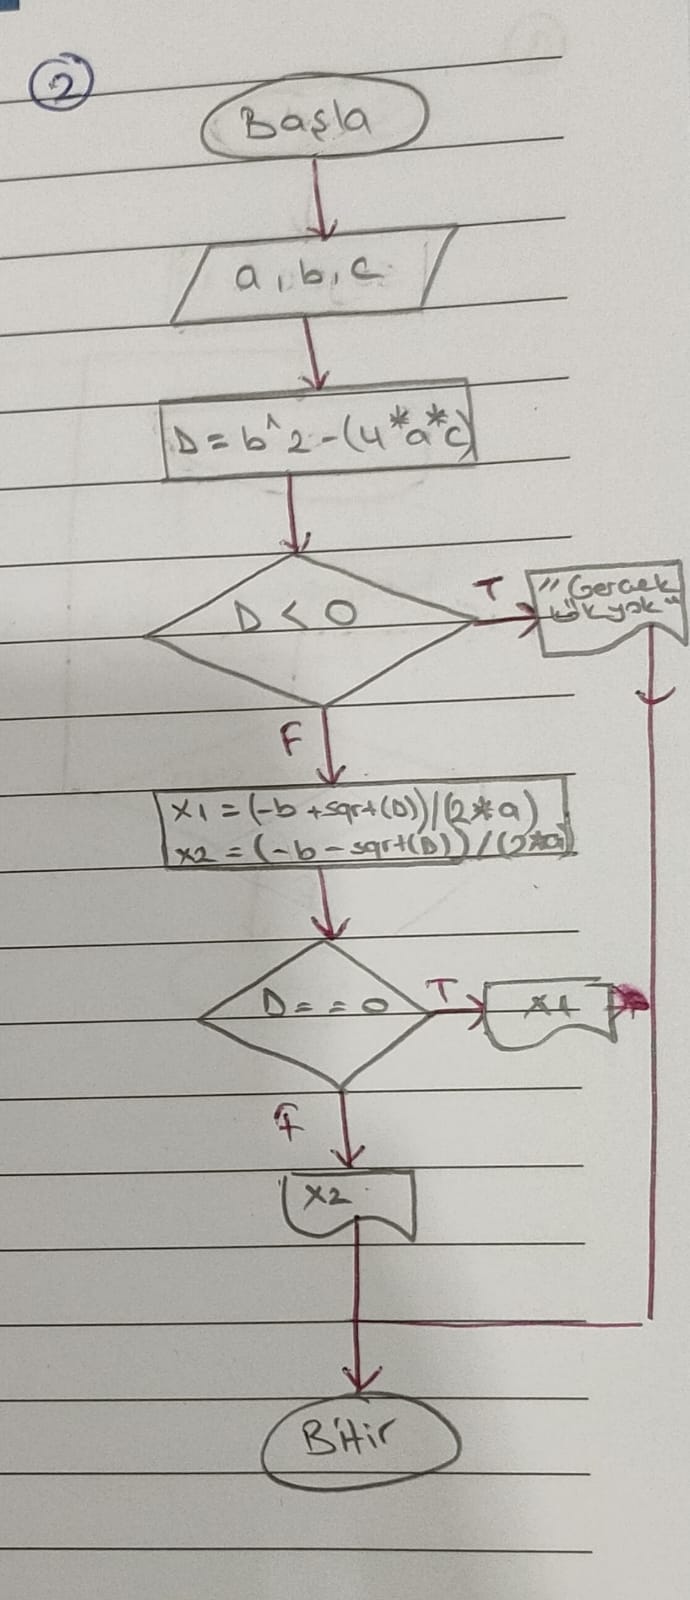 2
Başla
a, b, c
D = b^2 - (4*a*c)
D < 0
T
"Gerçek
kök yok"
F
x1 = (-b + sqrt(D)) / (2*a)
x2 = (-b - sqrt(D)) / (2*a)
D == 0
T
x1
F
x2
Bitir